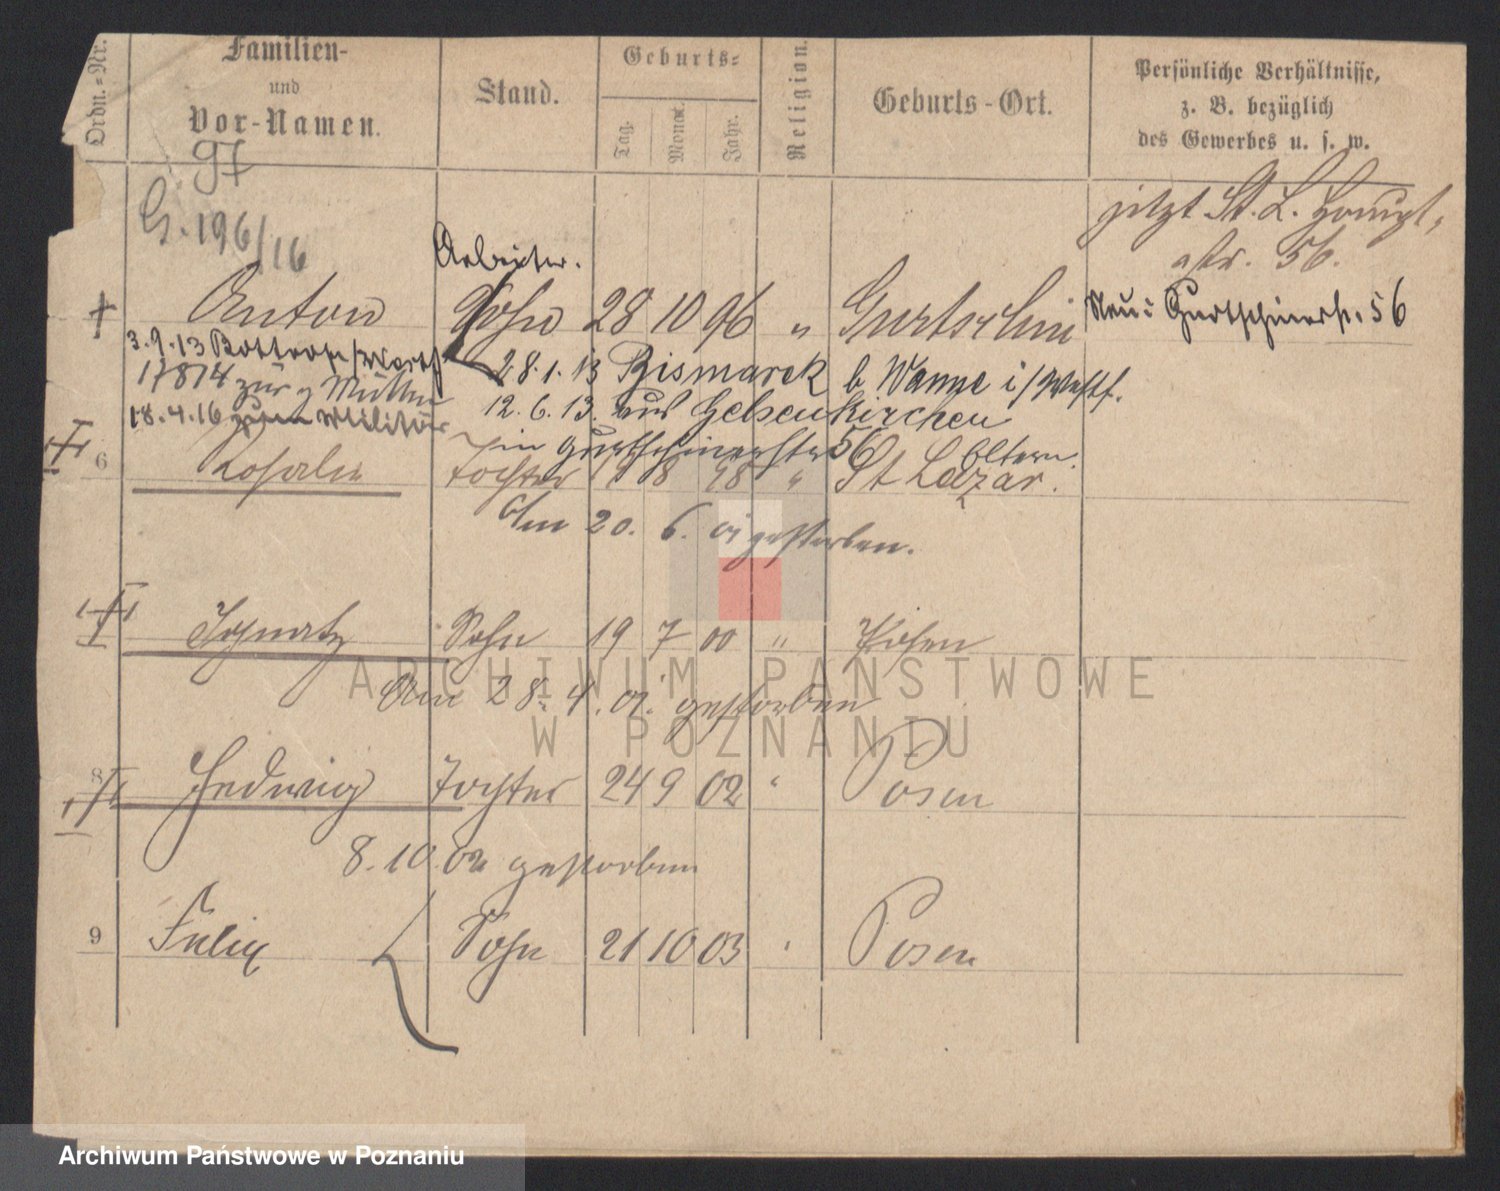 Ordn.=Nr.
Familien-
und
Vor-Namen.
Stand.
Geburts=
Tag.
Monat.
Jahr.
Religion.
Geburts-Ort.
Persönliche Verhältnisse,
z. B. bezüglich
des Gewerbes u. s. w.
97
G. 196/16
jetzt St. L.
str. 56.
Arbeiter.
Anton Sohn 28 10 96 " Gurtschin Neu: Gurtschinerstr. 56
3.9.13 Bottrop/Westf 28.1.13 Bismarck b Wanne i/Westf.
17814 zur Mutter 12.6.13. aus Gelsenkirchen
18.4.16 zum Militär in Gurtschinerstr 56 Eltern.
6 Rosalie Tochter 1 8 98 " St Lazar.
Am 20. 6. 01 gestorben.
Ignatz Sohn 19 7 00 " Posen
Am 28. 4. 01. gestorben
8 Hedwig Tochter 24 9 02 " Posen
8.10.02 gestorben
9 Felix Sohn 21 10 03 " Posen
ARCHIWUM PAŃSTWOWE
W POZNANIU
Archiwum Państwowe w Poznaniu